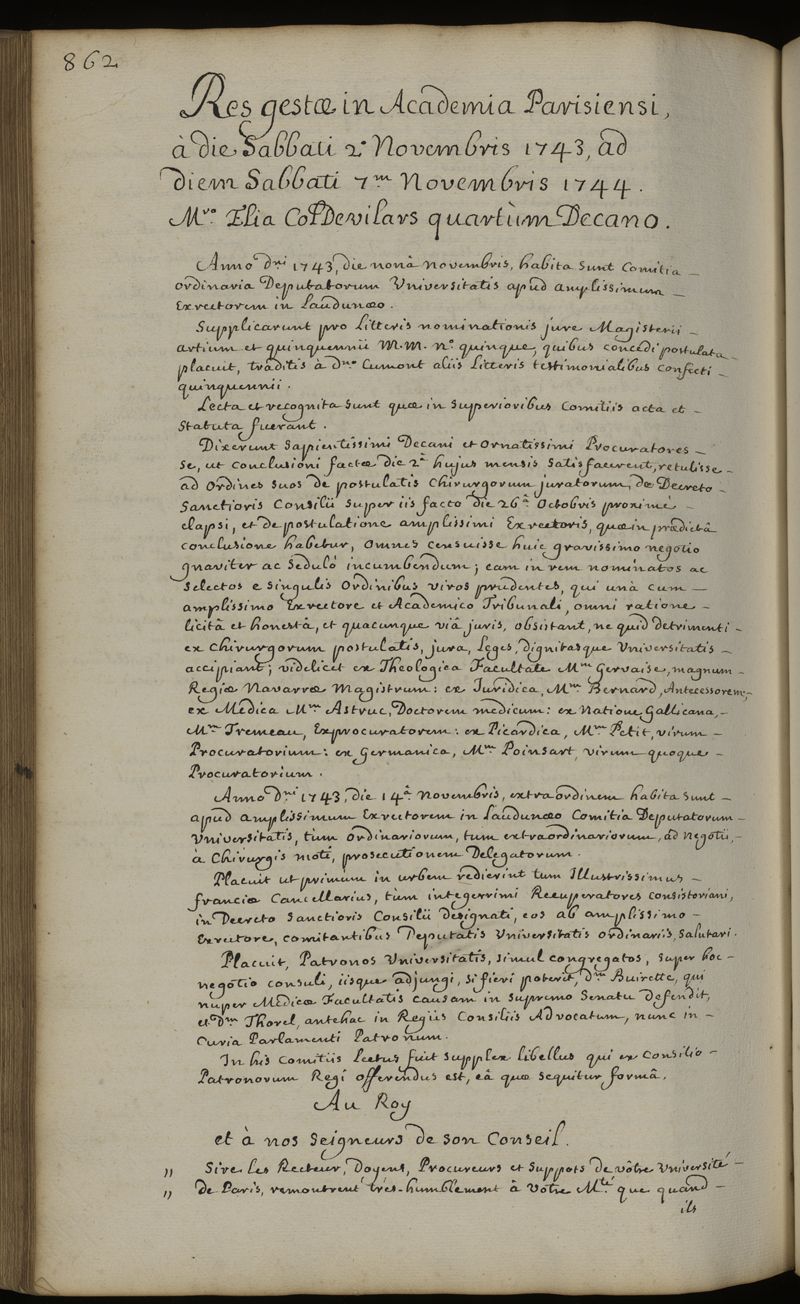 862
Res gestæ in Academia Parisiensi,
à die Sabbati 2.ª Novembris 1743, ad
diem Sabbati 7.m Novembris 1744.
M.ro Elia Col Devilars quartùm Decano.
Anno D.ni 1743, die nonâ novembris, habita sunt Comitia
ordinaria Deputatorum Universitatis apud amplissimum
Exrectorem in Laudunæo.
Supplicarunt pro Litteris nominationis jure Magisterii
artium et quinquennii M.M. n.º quinque, quibus concedi postulata
placuit, traditis à d.no Cumont aliis Litteris testimonialibus confecti
quinquennii.
Lecta et recognita sunt quæ in superioribus Comitiis acta et
statuta fuerant.
Dixerunt sapientissimi Decani et ornatissimi Procuratores
se, ut conclusioni factæ die 2.ª hujus mensis satisfacerent, retulisse
ad Ordines suos de postulatis Chirurgorum juratorum, de Decreto
Sanctioris Consilii super iis facto die 26.ª Octobris proximè
elapsi, et de postulatione amplissimi Exrectoris, quæ in prædictâ
conclusione habetur, omnes censuisse huic gravissimo negotio
gnaviter ac sedulò incumbendum; eam in rem nominatos ac
selectos e singulis Ordinibus viros prudentes, qui unà cum
amplissimo Exrectore et Academico Tribunali, omni ratione
licitâ et honestâ, et quacunque viâ juris, obsistant, ne quid detrimenti
ex chirurgorum postulatis, jura, Leges, dignitasque Universitatis
accipiant; videlicet ex Theologica Facultate M.um Gervaise, magnum
Regiæ Navarræ Magistrum: ex Juridica, M.um Bernard, Antecessorem;
ex Medica M.um Astruc, Doctorem medicum: ex Natione Gallicana,
M.um Tremeau, Exprocuratorem: ex Picardica, M.um Petit, virum
Procuratorium: ex Germanica, M.um Poinsart, virum quoque
Procuratorium.
Anno D.ni 1743, die 14.ª novembris, extraordinem habita sunt
apud amplissimum Exrectorem in Laudunæo Comitia Deputatorum
Universitatis, tùm ordinariorum, tum extraordinariorum, ad negotii,
à Chirurgis moti, prosecutionem Delegatorum.
Placuit ut primùm in urbem redierint tum Illustrissimus
franciæ Cancellarius, tùm integerrimi Recuperatores consistoriani,
in Decreto Sanctioris Consilii designati, eos ab amplissimo
Exrectore, comitantibus Deputatis Universitatis ordinariis, salutari.
Placuit, Patronos Universitatis, simul congregatos, super hoc
negotio consuli, iisque adjungi, si fieri poterit, d.um Buirette, qui
nuper Medicæ Facultatis causam in supremo Senatu defendit,
et d.um Thorel, antehac in Regiis Consiliis Advocatum, nunc in
Curia Parlamenti Patronum.
In his Comitiis Lectus fuit supplex libellus qui ex Consilio
Patronorum Regi offerendus est, eâ quæ sequitur formâ.
Au Roy
et à nos Seigneurs de son Conseil.
" Sire les Recteur, Doyens, Procureurs et Suppots de vôtre Université
" de Paris, remontrent trés-humblement à Votre M.té que quand
ils